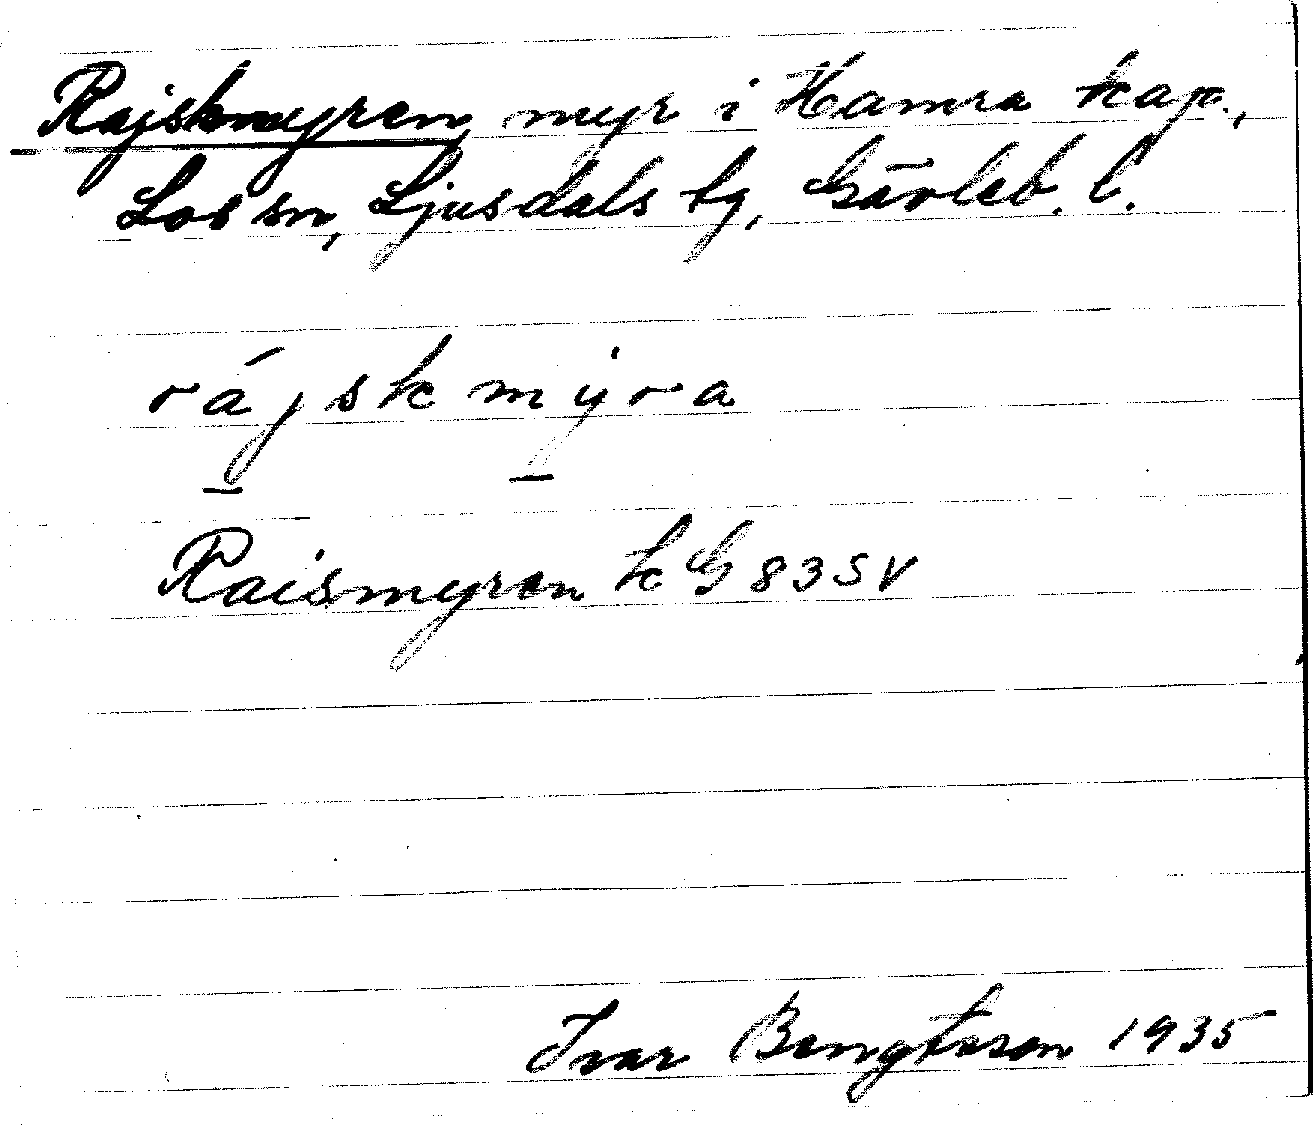 Rajskmyren, myr i Hamra kap.,
Los sn, Ljusdals tg, Gävleb. l.
rájskmýra
Raismyren k G 83 SV
Ivar Bengtsson 1935